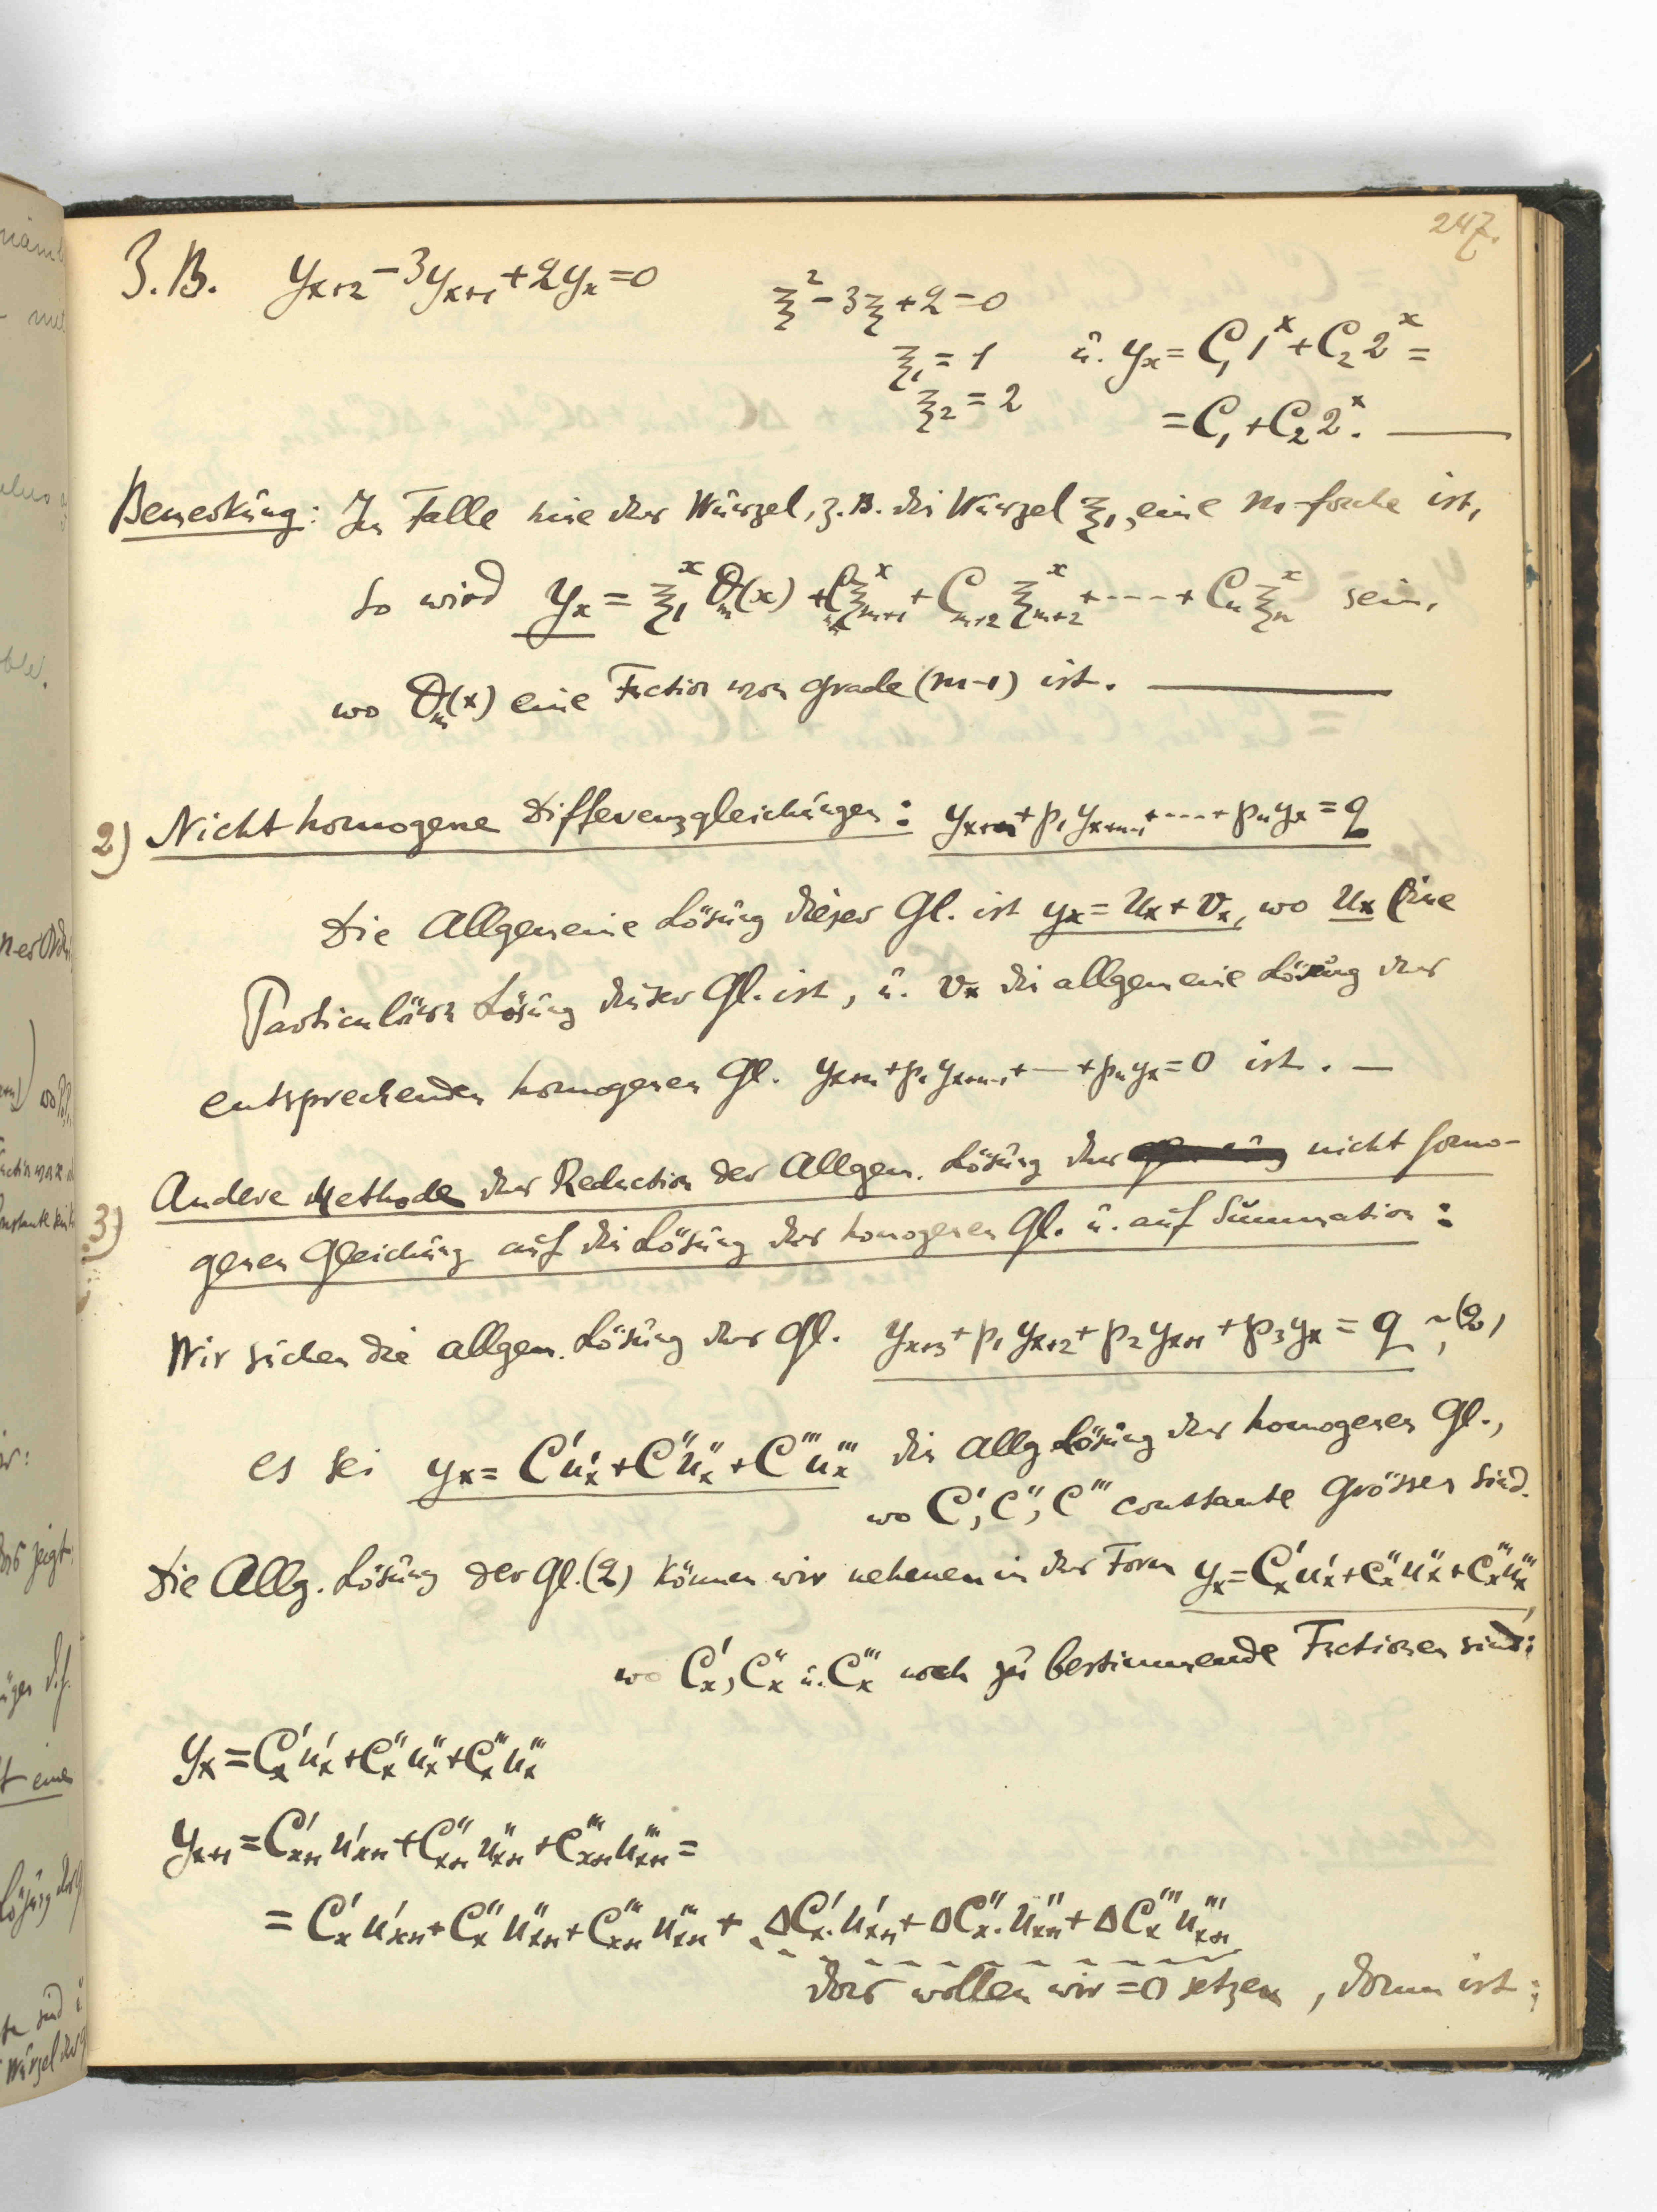 247.
Z.B. y_{x+2} - 3y_{x+1} + 2y_x = 0
ξ² - 3ξ + 2 = 0
ξ_1 = 1 u. y_x = C_1 1^x + C_2 2^x =
ξ_2 = 2 = C_1 + C_2 2^x.
Bemerkung: Im Falle eine der Würzel, z.B. die Würzel ξ_1, eine m-fache ist,
so wird y_x = ξ_1^x θ_m(x) + C_{m+1} ξ_{m+1}^x + C_{m+2} ξ_{m+2}^x + ---- + C_n ξ_n^x sein,
wo θ_m(x) eine Fnction von grade (m-1) ist.
2) Nicht homogene Differenzgleichungen: y_{x+n} + p_1 y_{x+n-1} + ---- + p_n y_x = q
Die Allgemeine Lösung dieser Gl. ist y_x = u_x + v_x, wo u_x eine
Particuläre Lösung dieser Gl. ist, u. v_x die allgemeine Lösung der
entsprechenden homogenen Gl. y_{x+n} + p_1 y_{x+n-1} + --- + p_n y_x = 0 ist. —
3) Andere Methode der Reduction der Allgem. Lösung der nicht homo-
genen Gleichung auf die Lösung der homogenen Gl. u. auf Summation:
Wir suchen die allgem. Lösung der Gl. y_{x+3} + p_1 y_{x+2} + p_2 y_{x+1} + p_3 y_x = q ~ (2),
es sei y_x = C' u'_x + C'' u''_x + C''' u'''_x die allg Lösung der homogenen Gl.,
wo C', C'', C''' constante Grössen sind.
Die Allg. Lösung der Gl. (2) können wir nehmen in der Form y_x = C'_x u'_x + C''_x u''_x + C'''_x u'''_x,
wo C'_x, C''_x u. C'''_x noch zu bestimmende Fnctionen sind:
y_x = C'_x u'_x + C''_x u''_x + C'''_x u'''_x
y_{x+1} = C'_{x+1} u'_{x+1} + C''_{x+1} u''_{x+1} + C'''_{x+1} u'''_{x+1} =
= C'_x u'_{x+1} + C''_x u''_{x+1} + C'''_{x+1} u'''_{x+1} + ΔC'_x . u'_{x+1} + ΔC''_x . u''_{x+1} + ΔC'''_x u'''_{x+1}
das wollen wir = 0 setzen, dann ist: